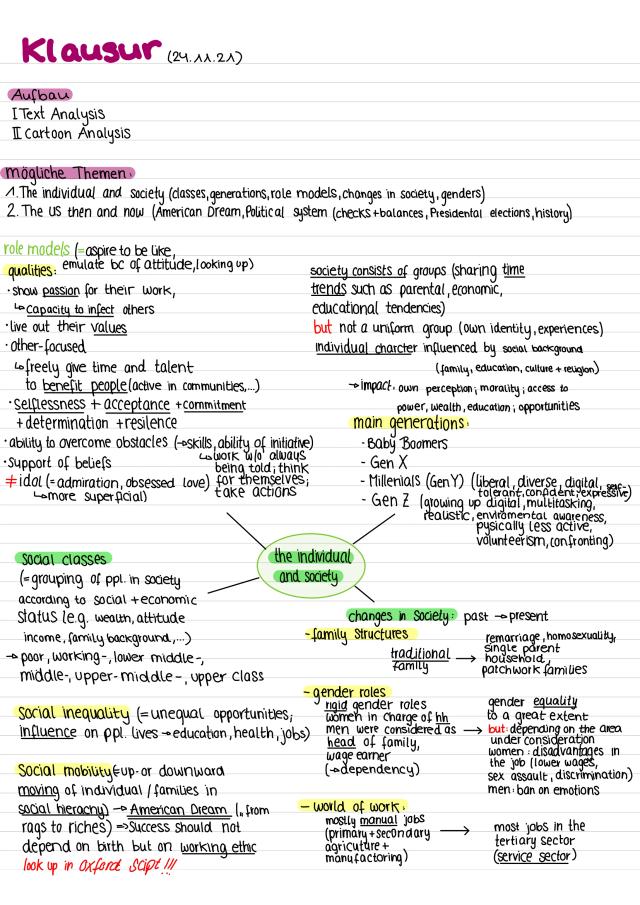 Klausur (24.11.21)
Aufbau
I Text Analysis
II Cartoon Analysis
mögliche Themen:
1. The individual and society (classes, generations, role models, changes in society, genders)
2. The US then and now (American Dream, Political system (checks+balances, Presidental elections, history)
role models (=aspire to be like,
emulate bc of attitude, looking up)
qualities:
·show passion for their work,
↳capacity to infect others
·live out their values
·other-focused
↳freely give time and talent
to benefit people (active in communities,...)
·selflessness + acceptance +commitment
+determination +resilence
·ability to overcome obstacles (→skills, ability of initiative)
↳work w/o always
being told; think
for themselves;
take actions
·support of beliefs
≠idol (=admiration, obsessed love)
↳more superficial)
society consists of groups (sharing time
trends such as parental, economic,
educational tendencies)
but not a uniform group (own identity, experiences)
individual charcter influenced by social background
(family, education, culture + religion)
→impact: own perception; morality; access to
power, wealth, education; opportunities
main generations:
- Baby Boomers
- Gen X
- Millenials (Gen Y) (liberal, diverse, digital, self-
tolerant, confident, expressive)
- Gen Z (growing up digital, multitasking,
realistic, enviromental awareness,
pysically less active,
volunteerism, confronting)
the individual
and society
social classes
(=grouping of ppl. in society
according to social + economic
status (e.g. wealth, attitude
income, family background,...)
→ poor, working-, lower middle-,
middle-, upper-middle-, upper class
social inequality (= unequal opportunities;
influence on ppl. lives → education, health, jobs)
social mobility (=up- or downward
moving of individual / families in
social hierachy) → American Dream („from
rags to riches) ⇒ Success should not
depend on birth but on working ethic
look up in Oxford Scipt!!!
changes in Society: past → present
- family Structures
traditional
family
→
remarriage, homosexuality,
single parent
household,
patchwork families
- gender roles
rigid gender roles
women in charge of hh
men were considered as
head of family,
wage earner
(→dependency)
→
gender equality
to a great extent
but: depending on the area
under consideration
women: disadvantages in
the job (lower wages,
sex assault, discrimination)
men: ban on emotions
- world of work:
mostly manual jobs
(primary + secondary
agricuture +
manufactoring)
→
most jobs in the
tertiary sector
(service sector)